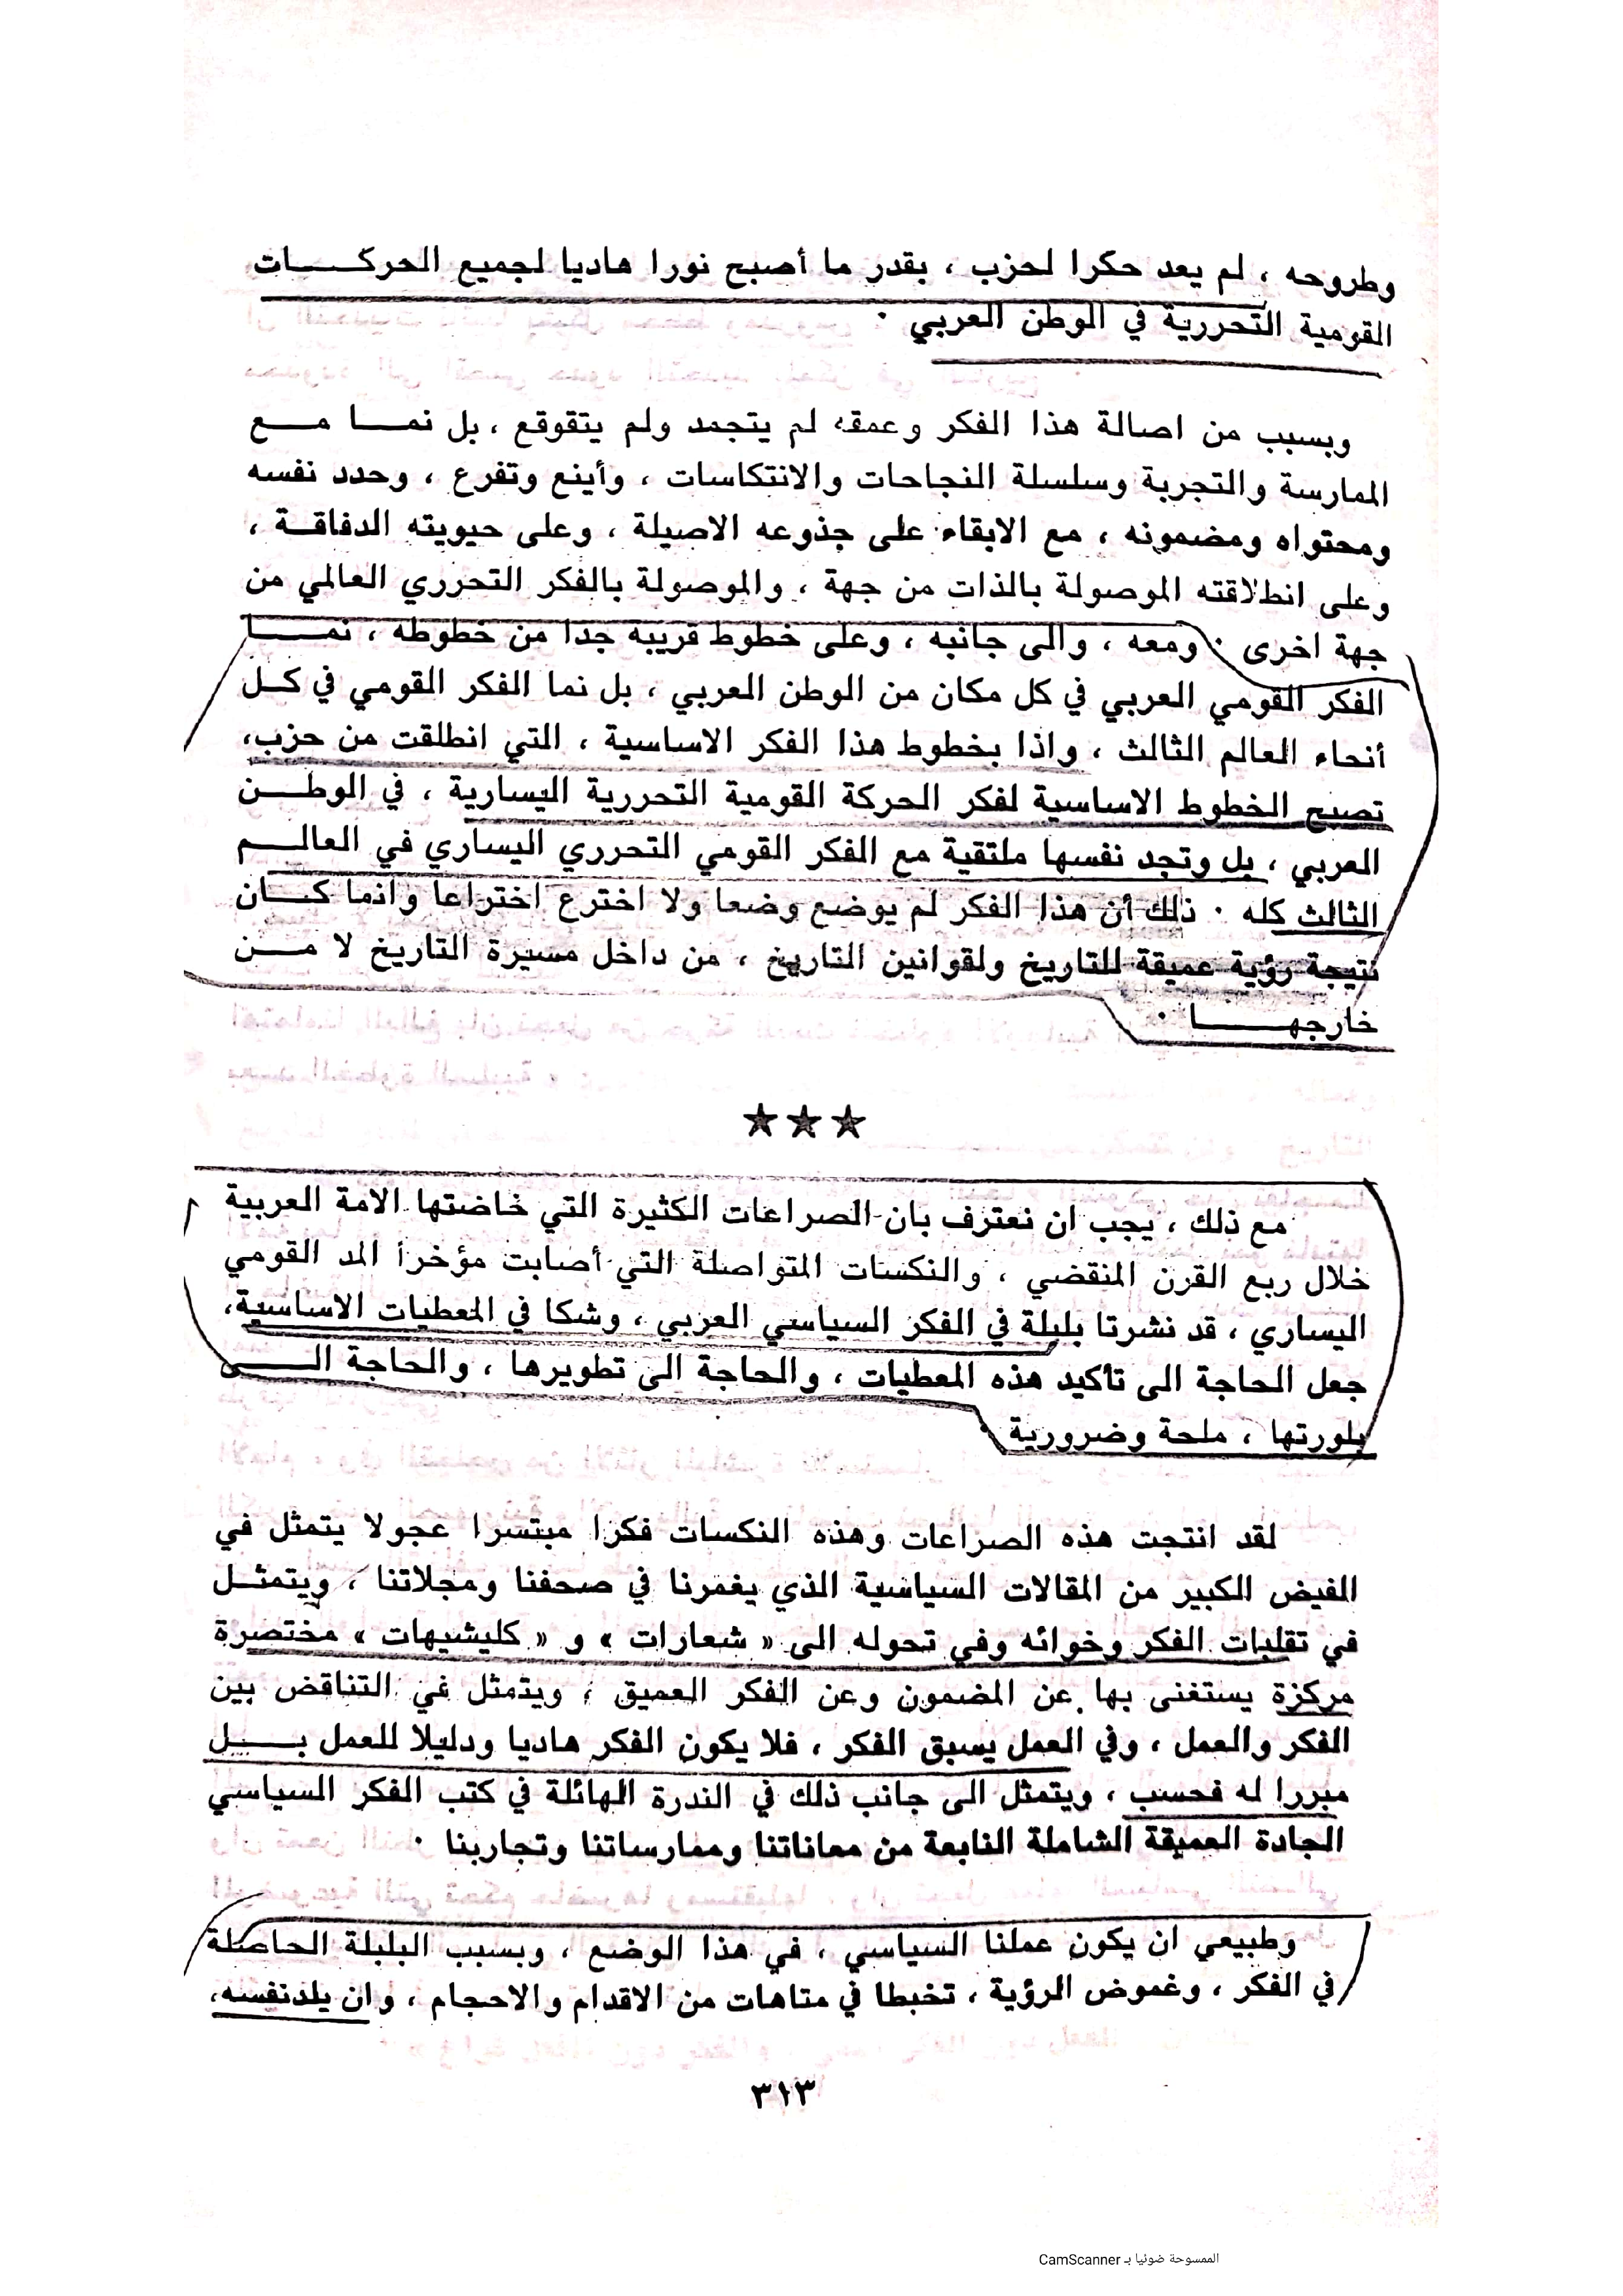 وطروحه ، لم يعد حكرا لحزب ، بقدر ما أصبح نورا هاديا لجميع الحركـــات
القومية التحررية في الوطن العربي ٠
وبسبب من اصالة هذا الفكر وعمقه لم يتجمد ولم يتقوقع ، بل نمــا مــع
الممارسة والتجربة وسلسلة النجاحات والانتكاسات ، وأينع وتفرع ، وحدد نفسه
ومحتواه ومضمونه ، مع الابقاء على جذوعه الاصيلة ، وعلى حيويته الدفاقــة ،
وعلى انطلاقته الموصولة بالذات من جهة ، والموصولة بالفكر التحرري العالمي من
جهة اخرى ٠ ومعه ، والى جانبه ، وعلى خطوط قريبة جدا من خطوطه ، نمـــا
الفكر القومي العربي في كل مكان من الوطن العربي ، بل نما الفكر القومي في كـل
أنحاء العالم الثالث ، واذا بخطوط هذا الفكر الاساسية ، التي انطلقت من حزب،
تصبح الخطوط الاساسية لفكر الحركة القومية التحررية اليسارية ، في الوطــن
العربي ، بل وتجد نفسها ملتقية مع الفكر القومي التحرري اليساري في العالــم
الثالث كله ٠ ذلك أن هذا الفكر لم يوضع وضعا ولا اخترع اختراعا وانما كــان
نتيجة رؤية عميقة للتاريخ ولقوانين التاريخ ، من داخل مسيرة التاريخ لا مــن
خارجهـــــا ٠
★★★
مع ذلك ، يجب ان نعترف بان الصراعات الكثيرة التي خاضتها الامة العربية
خلال ربع القرن المنقضي ، والنكسات المتواصلة التي أصابت مؤخرا المد القومي
اليساري ، قد نشرتا بلبلة في الفكر السياسي العربي ، وشكا في المعطيات الاساسية،
جعل الحاجة الى تأكيد هذه المعطيات ، والحاجة الى تطويرها ، والحاجة الـــى
بلورتها ، ملحة وضرورية ٠
لقد انتجت هذه الصراعات وهذه النكسات فكرا مبتسرا عجولا يتمثل في
الفيض الكبير من المقالات السياسية الذي يغمرنا في صحفنا ومجلاتنا ، ويتمثــل
في تقلبات الفكر وخوائه وفي تحوله الى « شعارات » و « كليشيهات » مختصرة
مركزة يستغنى بها عن المضمون وعن الفكر العميق ، ويتمثل في التناقض بين
الفكر والعمل ، وفي العمل يسبق الفكر ، فلا يكون الفكر هاديا ودليلا للعمل بــــل
مبررا له فحسب ، ويتمثل الى جانب ذلك في الندرة الهائلة في كتب الفكر السياسي
الجادة العميقة الشاملة النابعة من معاناتنا وممارساتنا وتجاربنا ٠
وطبيعي ان يكون عملنا السياسي ، في هذا الوضع ، وبسبب البلبلة الحاصلة
في الفكر ، وغموض الرؤية ، تخبطا في متاهات من الاقدام والاحجام ، وان يلد نفسه،
٣١٣
الممسوحة ضوئيا بـ CamScanner